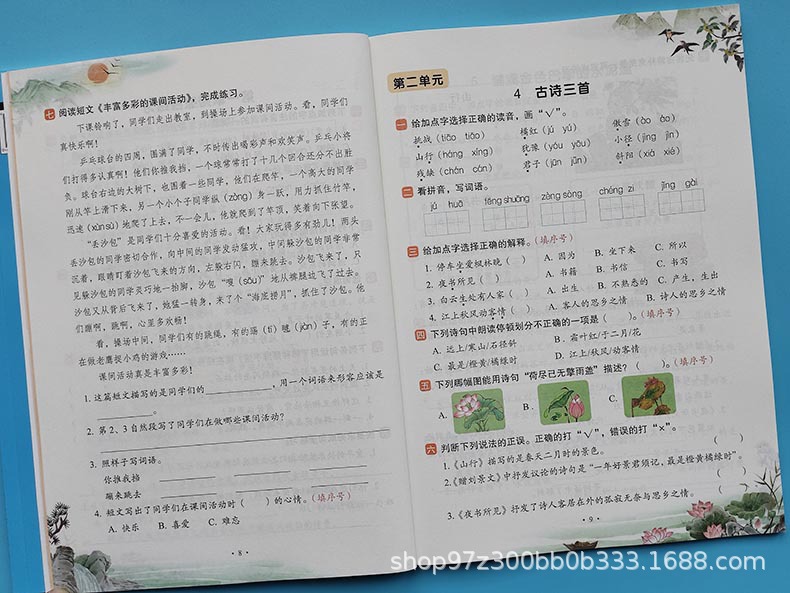 七 阅读短文《丰富多彩的课间活动》，完成练习。
下课铃响了，同学们走出教室，到操场上参加课间活动。看，同学们
真快乐啊！
乒乓球台的四周，围满了同学，不时传出喝彩声和欢笑声。乒乓小将
们打得多认真啊！他们你推我挡，一个球常常打了十几个回合还分不出胜
负。球台右边的大树下，也围着一些同学，他们在爬竿，一个高大的同学
刚从竿上滑下来，另一个小个子同学纵（zòng）身一跃，用力抓住竹竿，
迅速（xùn sù）地爬了上去，不一会儿，他就爬到了竿顶，笑着向下张望。
“丢沙包”是同学们十分喜爱的活动。看！大家玩得多有劲儿！两头
丢沙包的同学密切合作，向中间的同学发动猛攻，中间躲沙包的同学非常
沉着，眼睛盯着沙包飞来的方向，左躲右闪，蹦来跳去。沙包飞来了，只
见躲沙包的同学灵巧地一抬脚，沙包“嗖（sōu）”地从裤腿边飞了过去。
沙包又从背后飞来了，她猛一转身，来了个“海底捞月”，抓住了沙包。他
们蹦啊，跳啊，心里多欢畅！
看，操场中间，同学们有的跳绳，有的踢（tī）毽（jiàn）子，有的正
在做老鹰捉小鸡的游戏……
课间活动真是丰富多彩！
1. 这篇短文描写的是同学们的，用一个词语来形容应该是
。
2. 第2、3自然段写了同学们在做哪些课间活动？
3. 照样子写词语。
你推我挡
蹦来跳去
4. 短文写出了同学们在课间活动时（ ）的心情。（填序号）
A. 快乐 B. 喜爱 C. 难忘
· 8 ·
第二单元
4 古诗三首
一 给加点字选择正确的读音，画“√”。
挑战（tiāo tiǎo） 橘红（jú yú） 傲雪（ào āo）
山行（háng xíng） 犹豫（yóu yōu） 小径（jīng jìn）
残缺（chán cán） 君子（jūn jūn） 斜阳（xiá xié）
二 看拼音，写词语。
jú huā fēng shuāng zèng sòng chéng zi jīng gài
三 给加点字选择正确的解释。（填序号）
1. 停车坐爱枫林晚（ ） A. 因为 B. 坐下来 C. 所以
2. 夜书所见（ ） A. 书籍 B. 书信 C. 书写
3. 白云生处有人家（ ） A. 出生 B. 不熟悉的 C. 产生，生出
4. 江上秋风动客情（ ） A. 客人的思乡之情 B. 诗人的思乡之情
四 下列诗句中朗读停顿划分不正确的一项是（ ）。（填序号）
A. 远上/寒山/石径斜 B. 霜叶红/于二月/花
C. 最是/橙黄/橘绿时 D. 江上/秋风/动客情
五 下列哪幅图能用诗句“荷尽已无擎雨盖”描述？（ ）。（填序号）
A. B. C.
六 判断下列说法的正误。正确的打“√”，错误的打“×”。
1.《山行》描写的是春天二月时的景色。（ ）
2.《赠刘景文》中抒发议论的诗句是“一年好景君须记，最是橙黄橘绿时”。
（ ）
3.《夜书所见》抒发了诗人客居在外的孤寂无奈与思乡之情。（ ）
· 9 ·
shop97z300bb0b333.1688.com